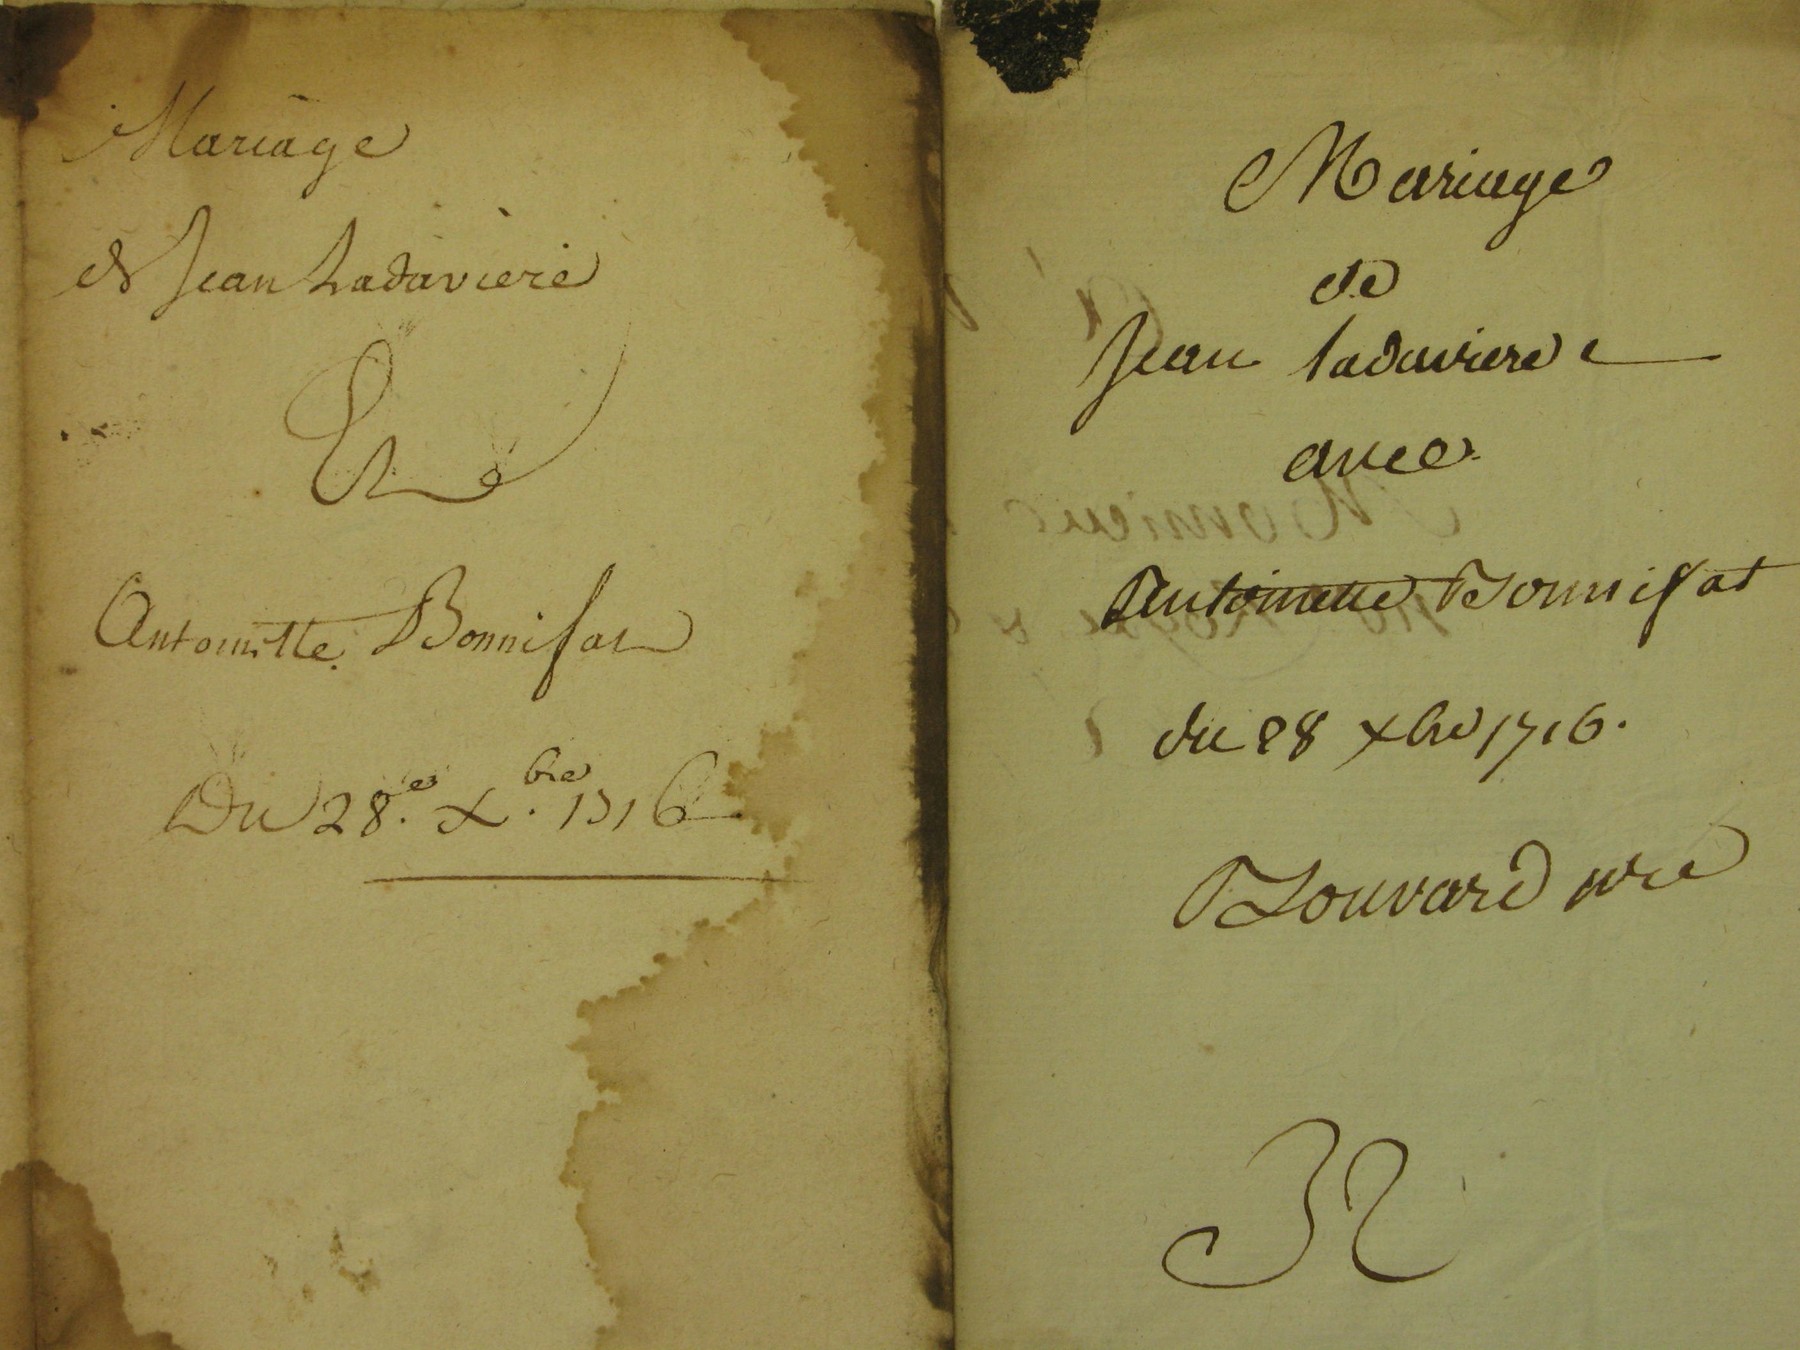 Mariage
de Jean Ladaviere
Et
Antoinette Bonnifat
Du 28.e X.bre 1716
Mariage
de
Jean ladaviere
avec
Antoinette Bonnifat
du 28 xbre 1716.
Bouvard nre
32